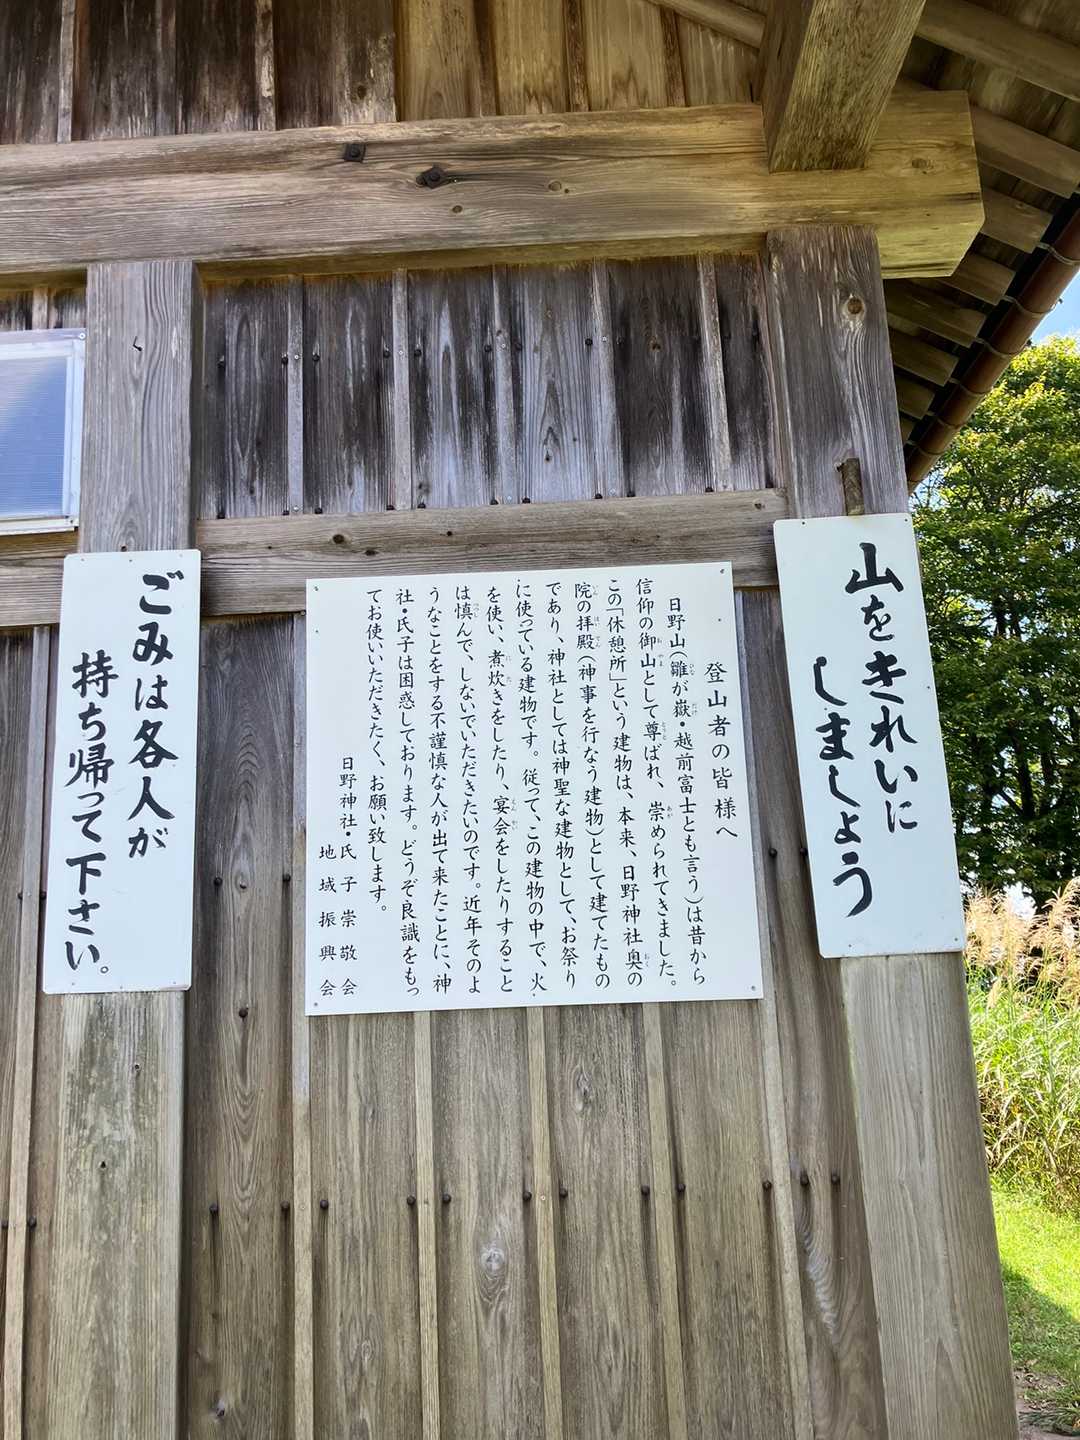 山をきれいに
しましょう
登山者の皆様へ
日野山(雛が嶽・越前富士とも言う)は昔から
信仰の御山として尊ばれ、崇められてきました。
この「休憩所」という建物は、本来、日野神社奥の
院の拝殿(神事を行なう建物)として建てたもの
であり、神社としては神聖な建物として、お祭り
に使っている建物です。従って、この建物の中で、火
を使い、煮炊きをしたり、宴会をしたりすること
は慎んで、しないでいただきたいのです。近年そのよ
うなことをする不謹慎な人が出て来たことに、神
社・氏子は困惑しております。どうぞ良識をもっ
てお使いいただきたく、お願い致します。
日野神社・氏子崇敬会
地域振興会
ごみは各人が
持ち帰って下さい。